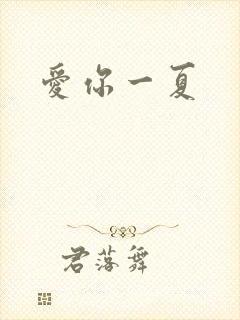 愛你一夏
君落舞